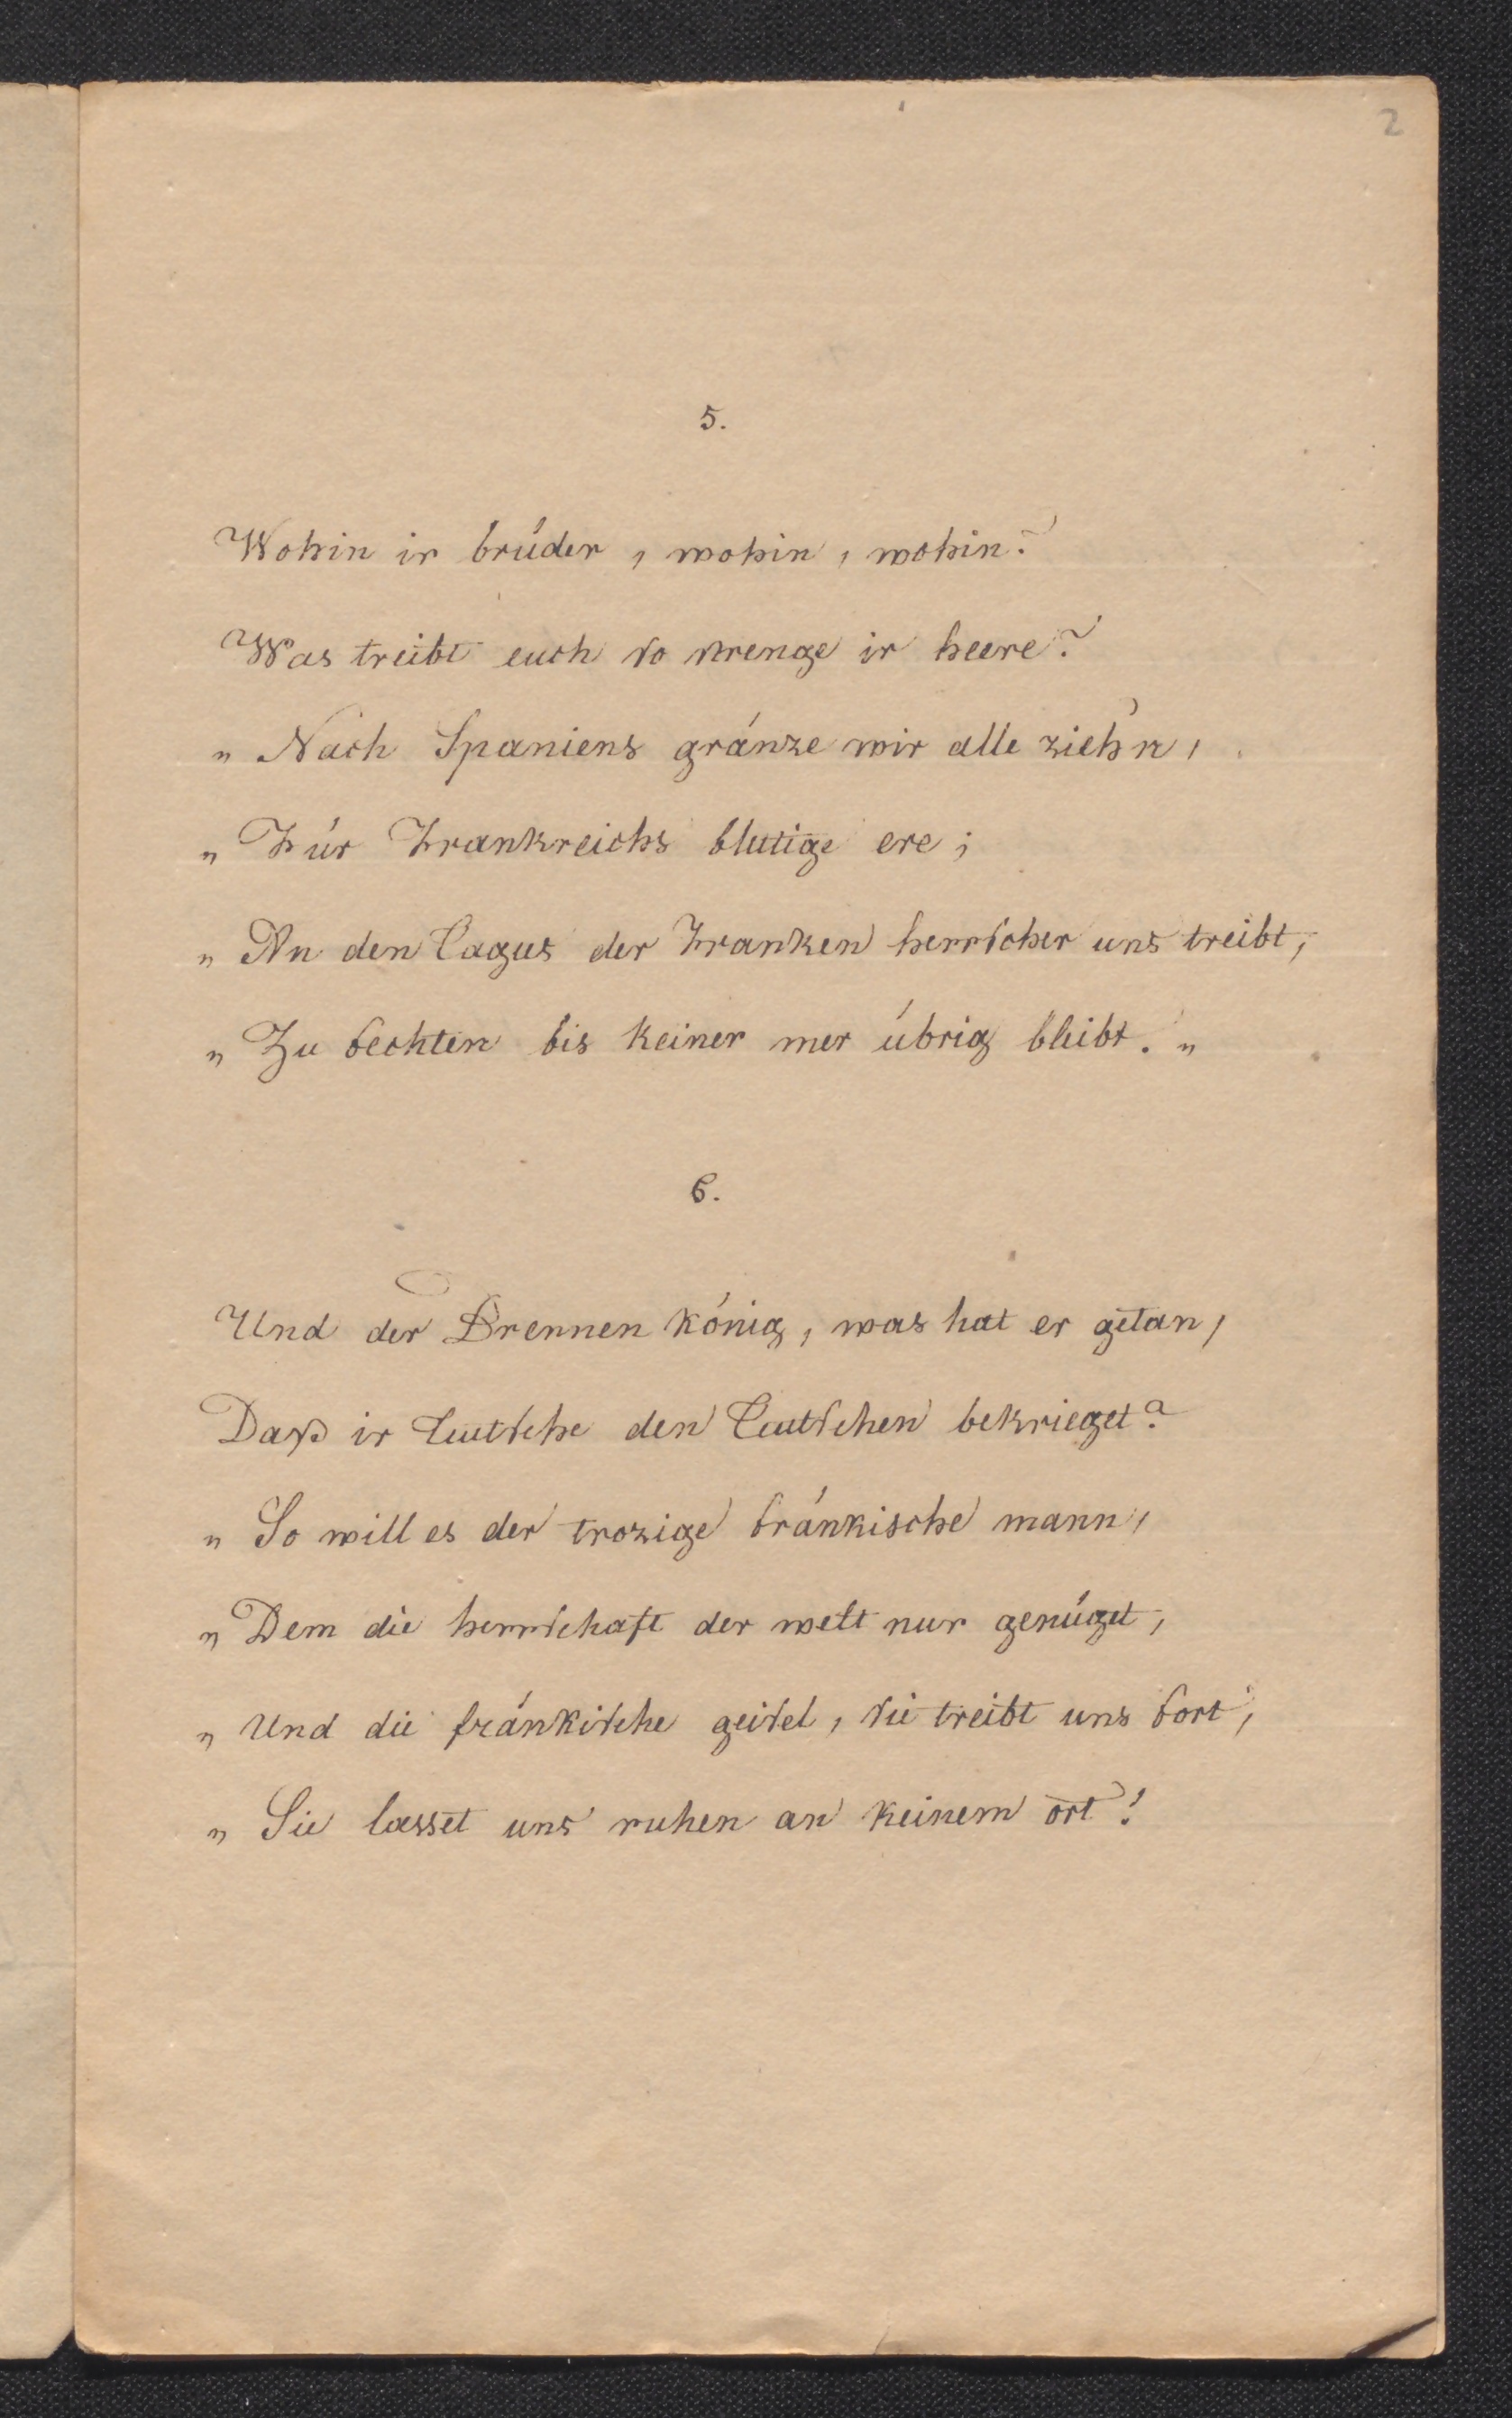 2
5.
Wohin ir brüder, wohin, wohin?
Was treibt euch so strenge ir heere?
„ Nach Spaniens gränze wir alle ziehn,
„ Für Frankreichs blutige ere;
„ An den Tagus der Franken herrscher uns treibt,
„ Zu fechten bis keiner mer übrig bleibt. „
6.
Und der Brennen könig, was hat er getan,
Daß ir Teutsche den Teutschen bekrieget?
„ So will es der trozige fränkische mann,
„ Dem die herrschaft der welt nur genüget,
„ Und die fränkische geisel, sie treibt uns fort,
„ Sie lasset uns ruhen an keinem ort!